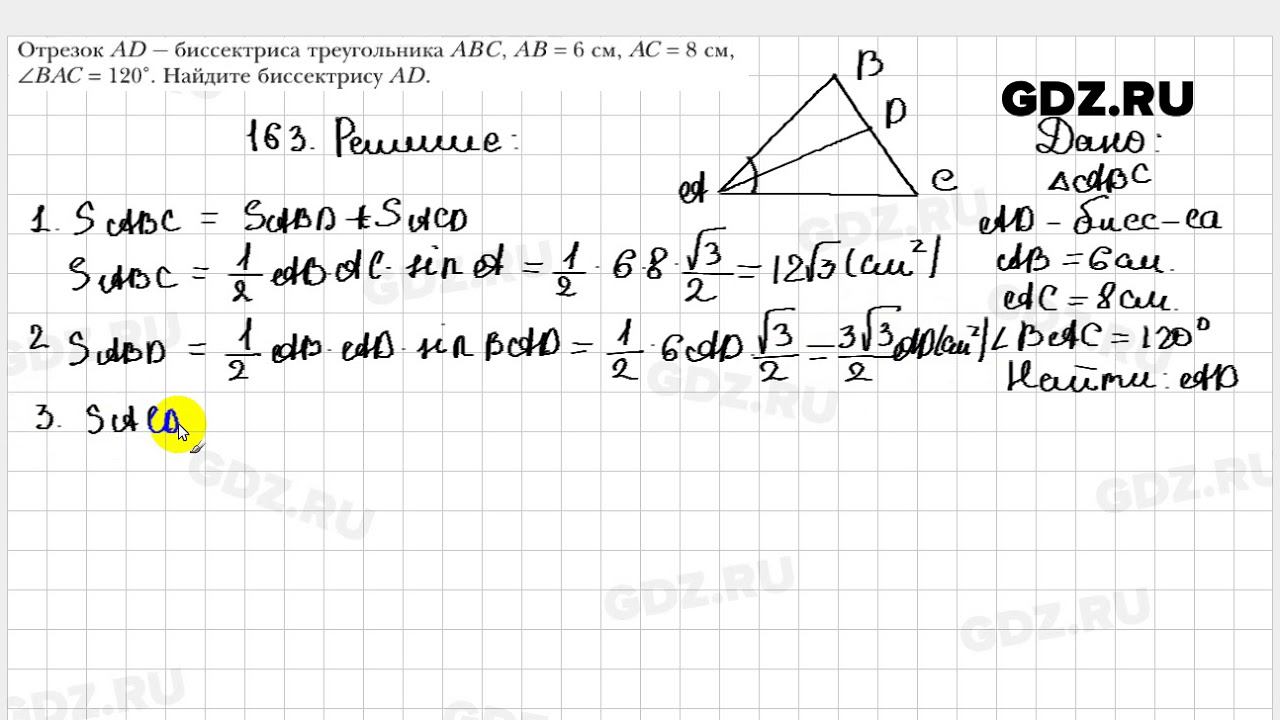 Отрезок AD — биссектриса треугольника ABC, AB = 6 см, AC = 8 см,
∠BAC = 120°. Найдите биссектрису AD.
GDZ.RU
163. Решение:
B
D
A
C
Дано:
△ABC
AD - бисс-са
AB = 6 см.
AC = 8 см.
∠BAC = 120°
Найти: AD
1. SABC = SABD + SACD
SABC = 1/2 AB·AC · sin A = 1/2 · 6·8 · √3/2 = 12√3 (см²)
2 SABD = 1/2 AB·AD · sin BAD = 1/2 · 6AD √3/2 = 3√3/2 AD (см²)
3. SACD
GDZ.RU
GDZ.RU
GDZ.RU
GDZ.RU
GDZ.RU
GDZ.RU
GDZ.RU
GDZ.RU
GDZ.RU
GDZ.RU
GDZ.RU